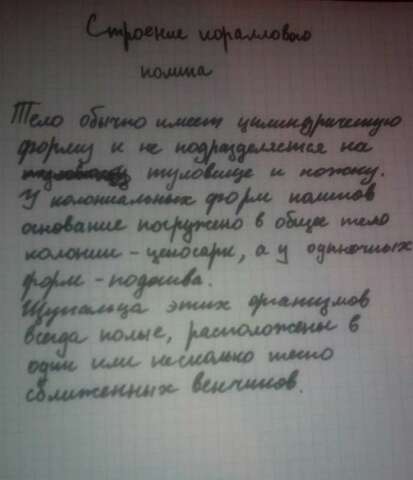 Строение кораллового
полипа
Тело обычно имеет цилиндрическую
форму и не подразделяется на
туловище и ножку.
У колониальных форм полипов
основание погружено в общее тело
колонии - ценосарк, а у одиночных
форм - подошва.
Щупальца этих организмов
всегда полые, расположены в
один или несколько тесно
сближенных венчиков.